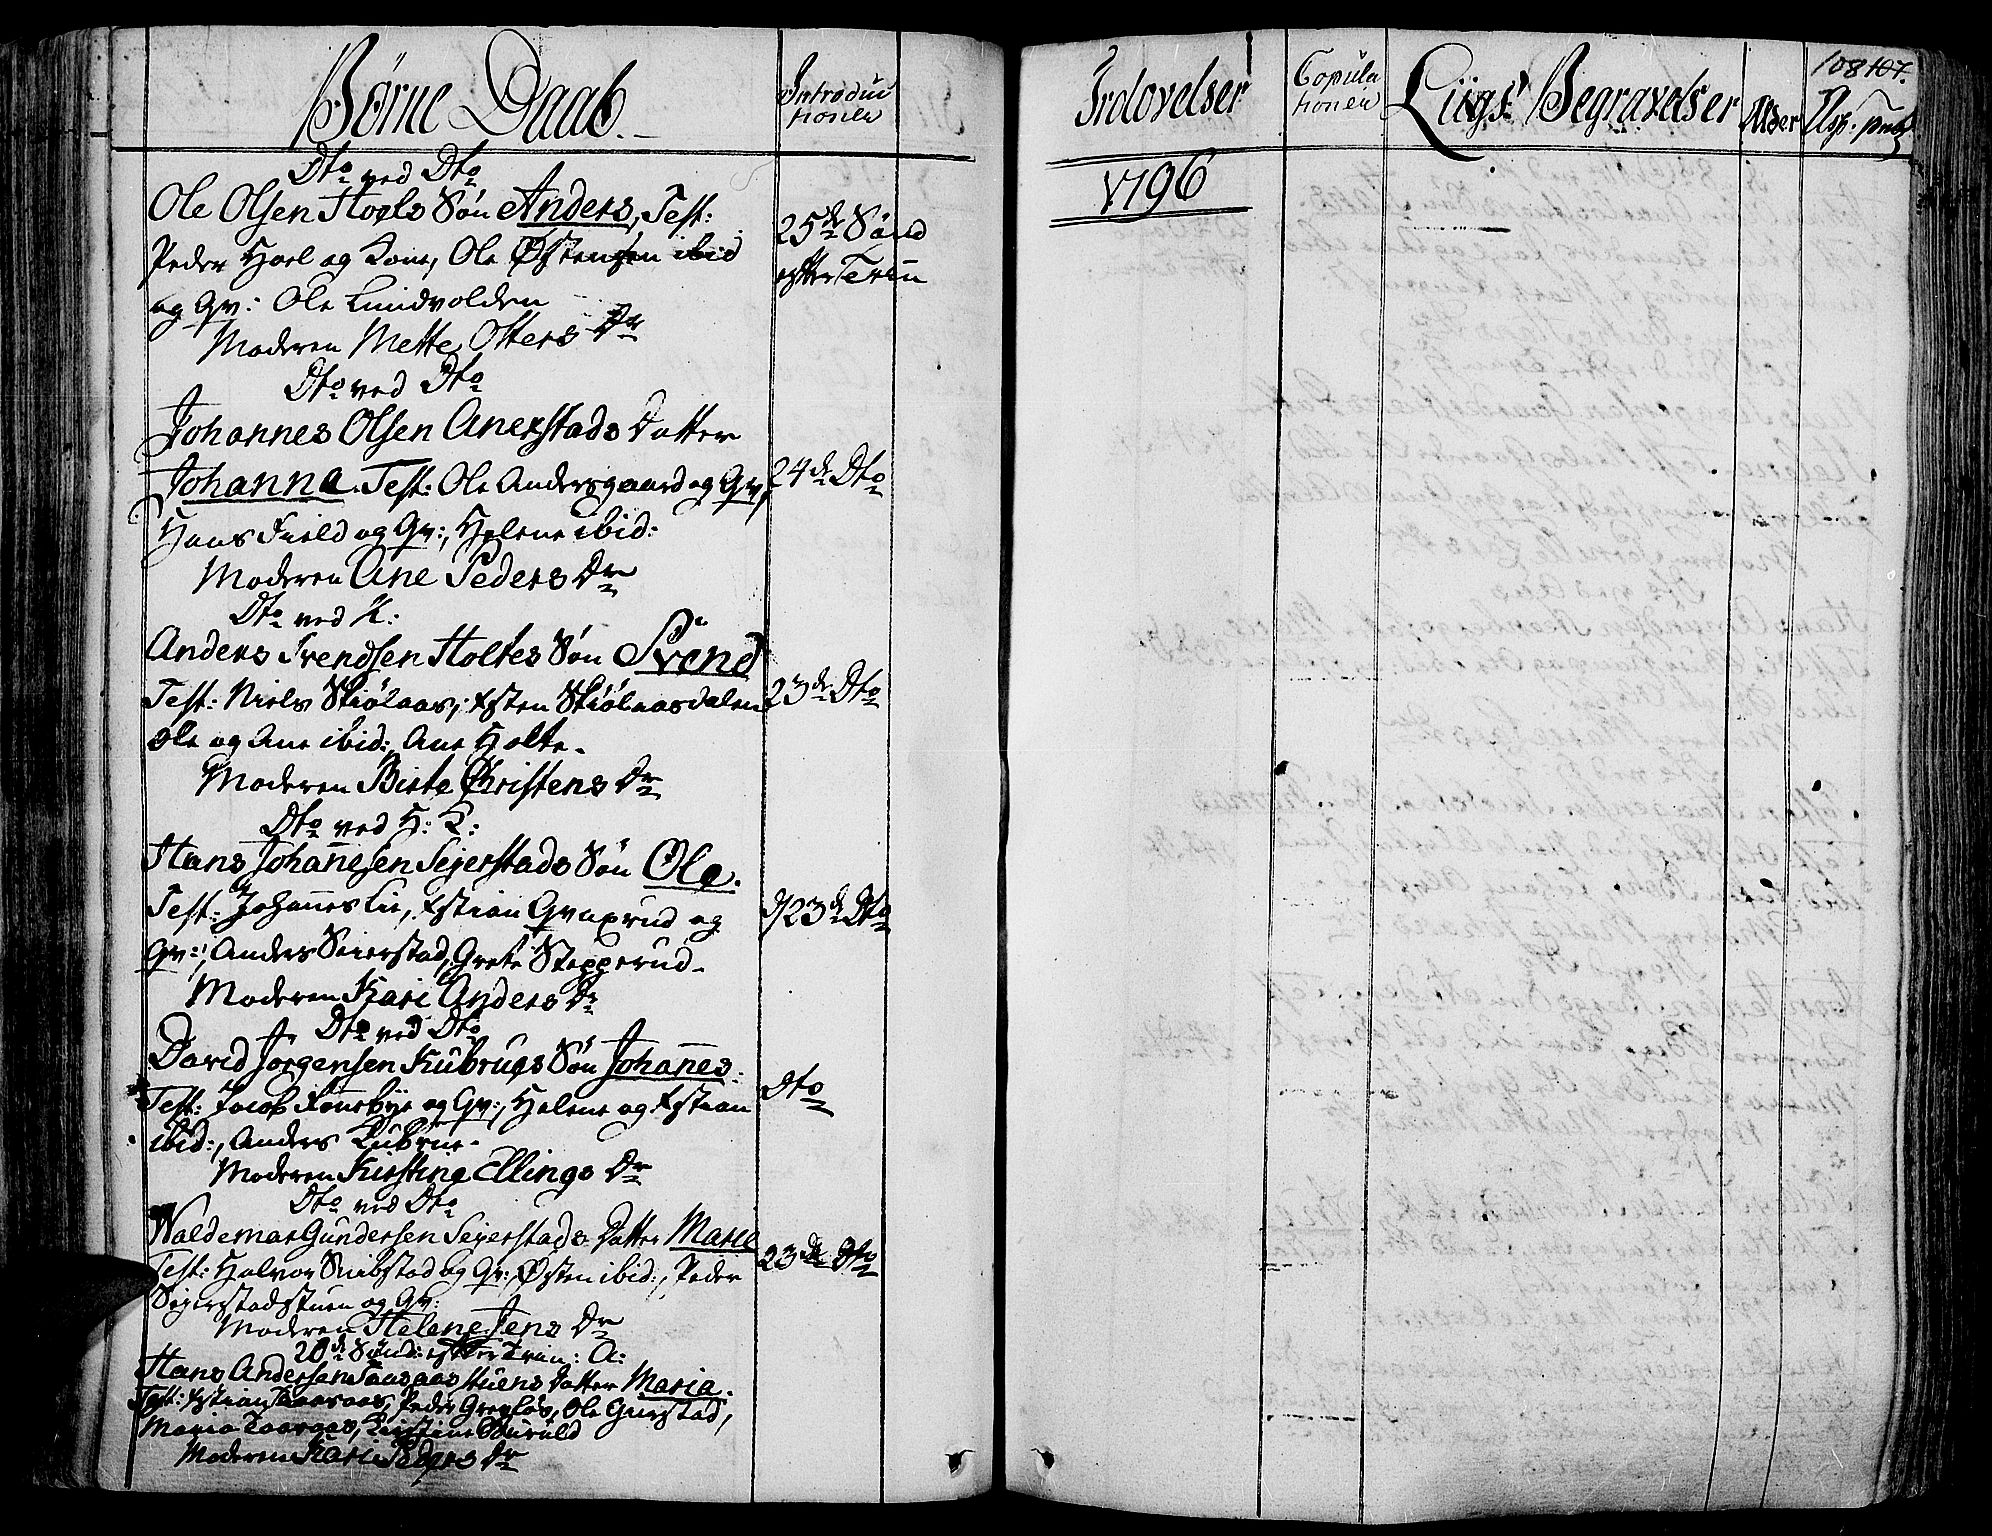 Børne Daab.
Introduc
tioner
Dto ved Dto
Ole Olsen Hoels Søn Anders, Test:
Peder Hoel og Kone, Ole Østensen ibid
og Qv: Ole Lundvolden
Moderen Mette Otters Dr
25de Sønd
efter Trin
Dto ved Dto
Johannes Olsen Anerstads Datter
Johanna. Test: Ole Andersgaard og Qv,
Hans Field og Qv:, Helene ibid:
Moderen Ane Peders Dr
24de Dto
Dto ved K:
Anders Svendsen Holtes Søn Svend
Test: Niels Skiølaas, Østen Skiølaasdalen
Ole og Ane ibid:, Ane Holte.
Moderen Birte Christens Dr
23de Dto
Dto ved H: K:
Hans Johañesen Sejerstads Søn Ole.
Test: Johañes Lie, Xstian og
Qv:, Anders Seierstad, Grete Stepperud.
Moderen Kari Anders Dr
23de Dto
Dto ved Dto
David Jörgensen Kubrues Søn Johañes.
Test: Jacob og Qv:, Helene og Xstian
ibid:, Anders Kubrue.
Moderen Kirstine Ellings Dr
Dto
Dto ved Dto
Waldemar Gundersen Sejerstads Datter Marie
Test: Halvor Snibstad og Qv:, Østen ibid:, Peder
Sejerstadstuen og Qv:
Moderen Helene Jens Dr
23de Dto
20de Sønd: efter Trin: A:
Hans Andersen Taasaasstuens Datter Maria.
Test: Xstian Taasaas, Peder Ole Gurstad,
Maria Taasaas, Kirstine
Moderen Kari Peders Dr
Trolovelser
Copula
tioner
Liigs Begravelser
Alder
108 107.
1796